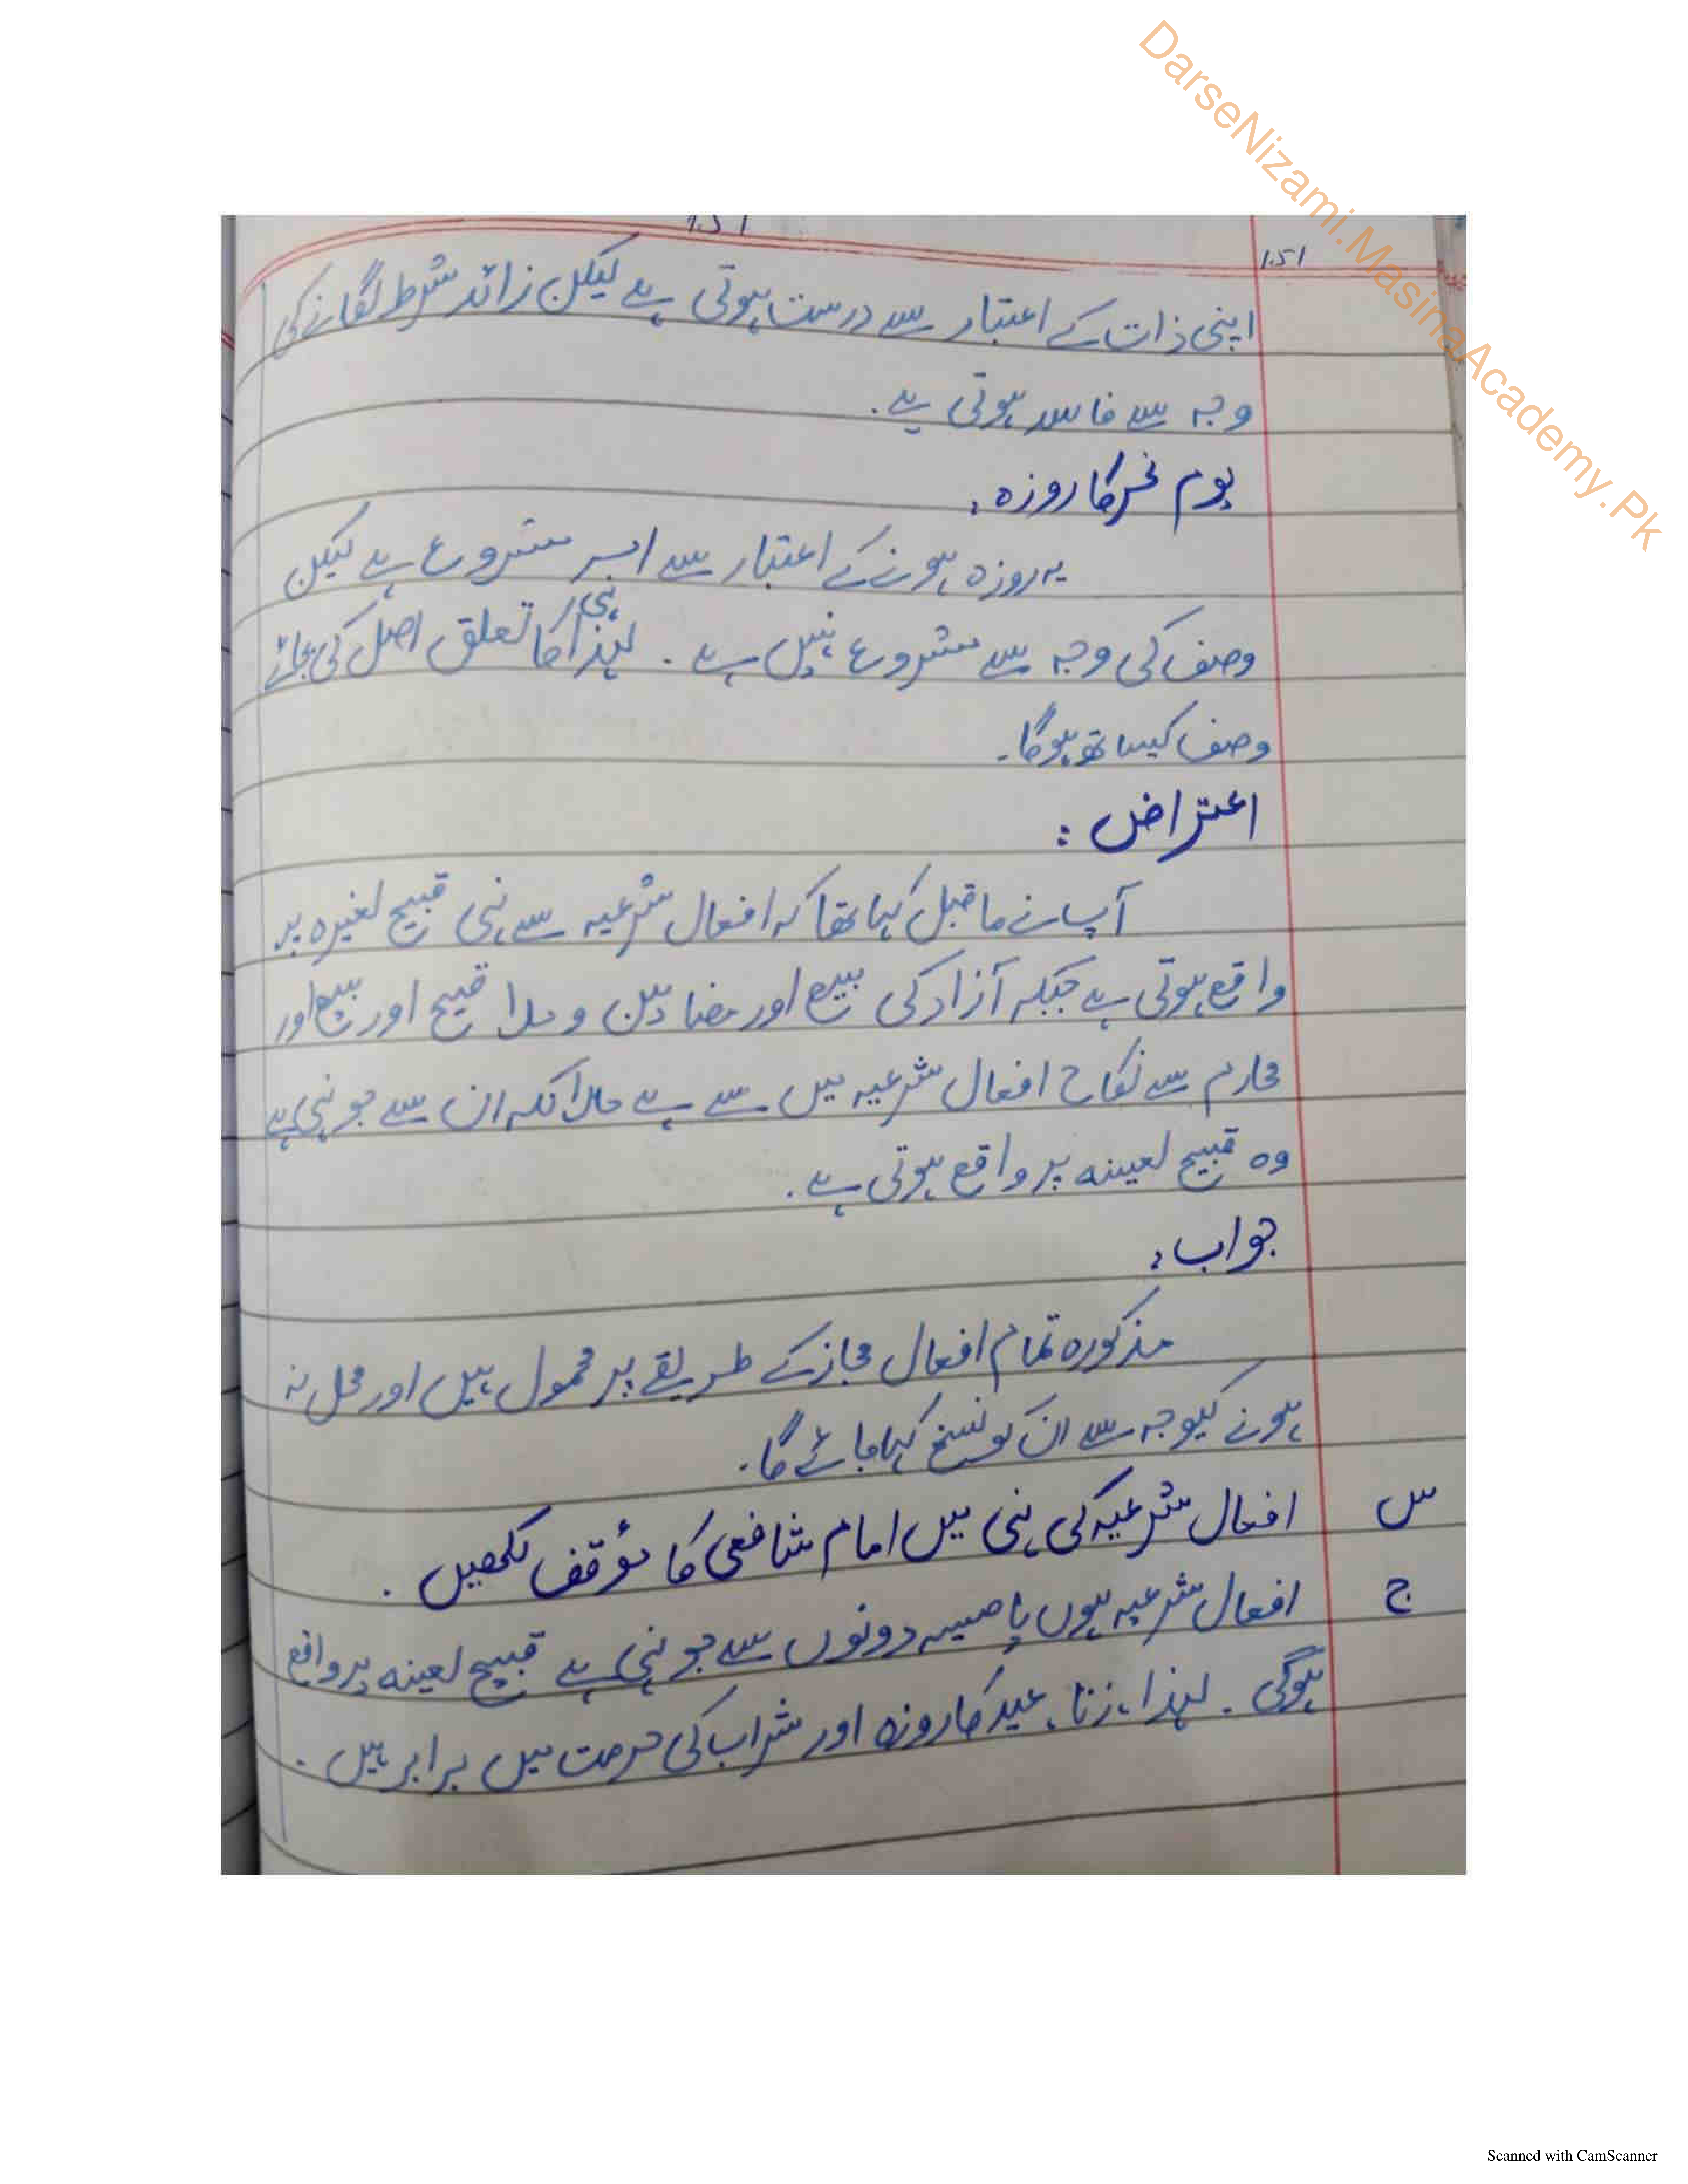 DarseNizami.MasinaAcademy.Pk
اپنی ذات کے اعتبار سے درست ہوتی ہے لیکن زائد شرط لگانے کی
وجہ سے فاسد ہوتی ہے.
یوم نحر کا روزہ:
یہ روزہ ہونے کے اعتبار سے مشروع ہے لیکن
وصف کی وجہ سے مشروع نہیں ہے. لہذا نہی کا تعلق اصل کی بجائے
وصف کیساتھ ہوگا.
اعتراض:
آپ نے ماقبل کہا تھا کہ افعال شرعیہ سے نہی قبیح لغیرہ پر
واقع ہوتی ہے جبکہ آزاد کی بیع اور مضامین و ملاقیح اور بیع اور
محارم سے نکاح افعال شرعیہ میں سے ہے حالانکہ ان سے جو نہی ہے
وہ قبیح لعینہ پر واقع ہوتی ہے.
جواب:
مذکورہ تمام افعال مجاز کے طریقے پر محمول ہیں اور محل نہ
ہونے کیوجہ سے ان کو نسخ کہا جائے گا.
س افعال شرعیہ کی نہی میں امام شافعی کا مؤقف لکھیں.
ج افعال شرعیہ ہوں یا حسیہ دونوں سے جو نہی ہے قبیح لعینہ پر واقع
ہوگی. لہذا، زنا، عید کا روزہ اور شراب کی حرمت میں برابر ہیں.
Scanned with CamScanner